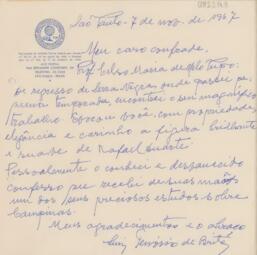 São Paulo - 7 de nov. de 1967
Meu caro confrade,
Prof. Celso Maria de Mello Pupo.
De regresso de Serra Negra onde passei pe
quena temporada, encontrei o seu magnifico
trabalho. Evocou você, com propriedade,
elegância e carinho a figura brilhante
e suave de Rafael Duarte.
Pessoalmente o conheci e desvanecido
confesso que recebi de suas mãos
um dos seus preciosos estudos sobre
Campinas.
Meus agradecimentos e o abraço